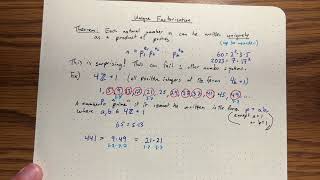 Unique Factorization
Theorem: Each natural number n can be written uniquely
as a product of primes (up to reorder)
60 = 2²·3·5
2023 = 7·17²
This is surprising! This can fail in other number systems.
Ex) 4ℤ+1 (all positive integers of the form 4k+1)
1, 5, 9, 13, 17, 21, 25, 29, 33, 37, 41, 45, 49
A number is "prime" if it cannot be written in the form p = ab
where a, b ∈ 4ℤ+1 (except a=1 or b=1)
65 = 5·13
441 = 9·49 = 21·21
3·3·7·7 3·7·3·7